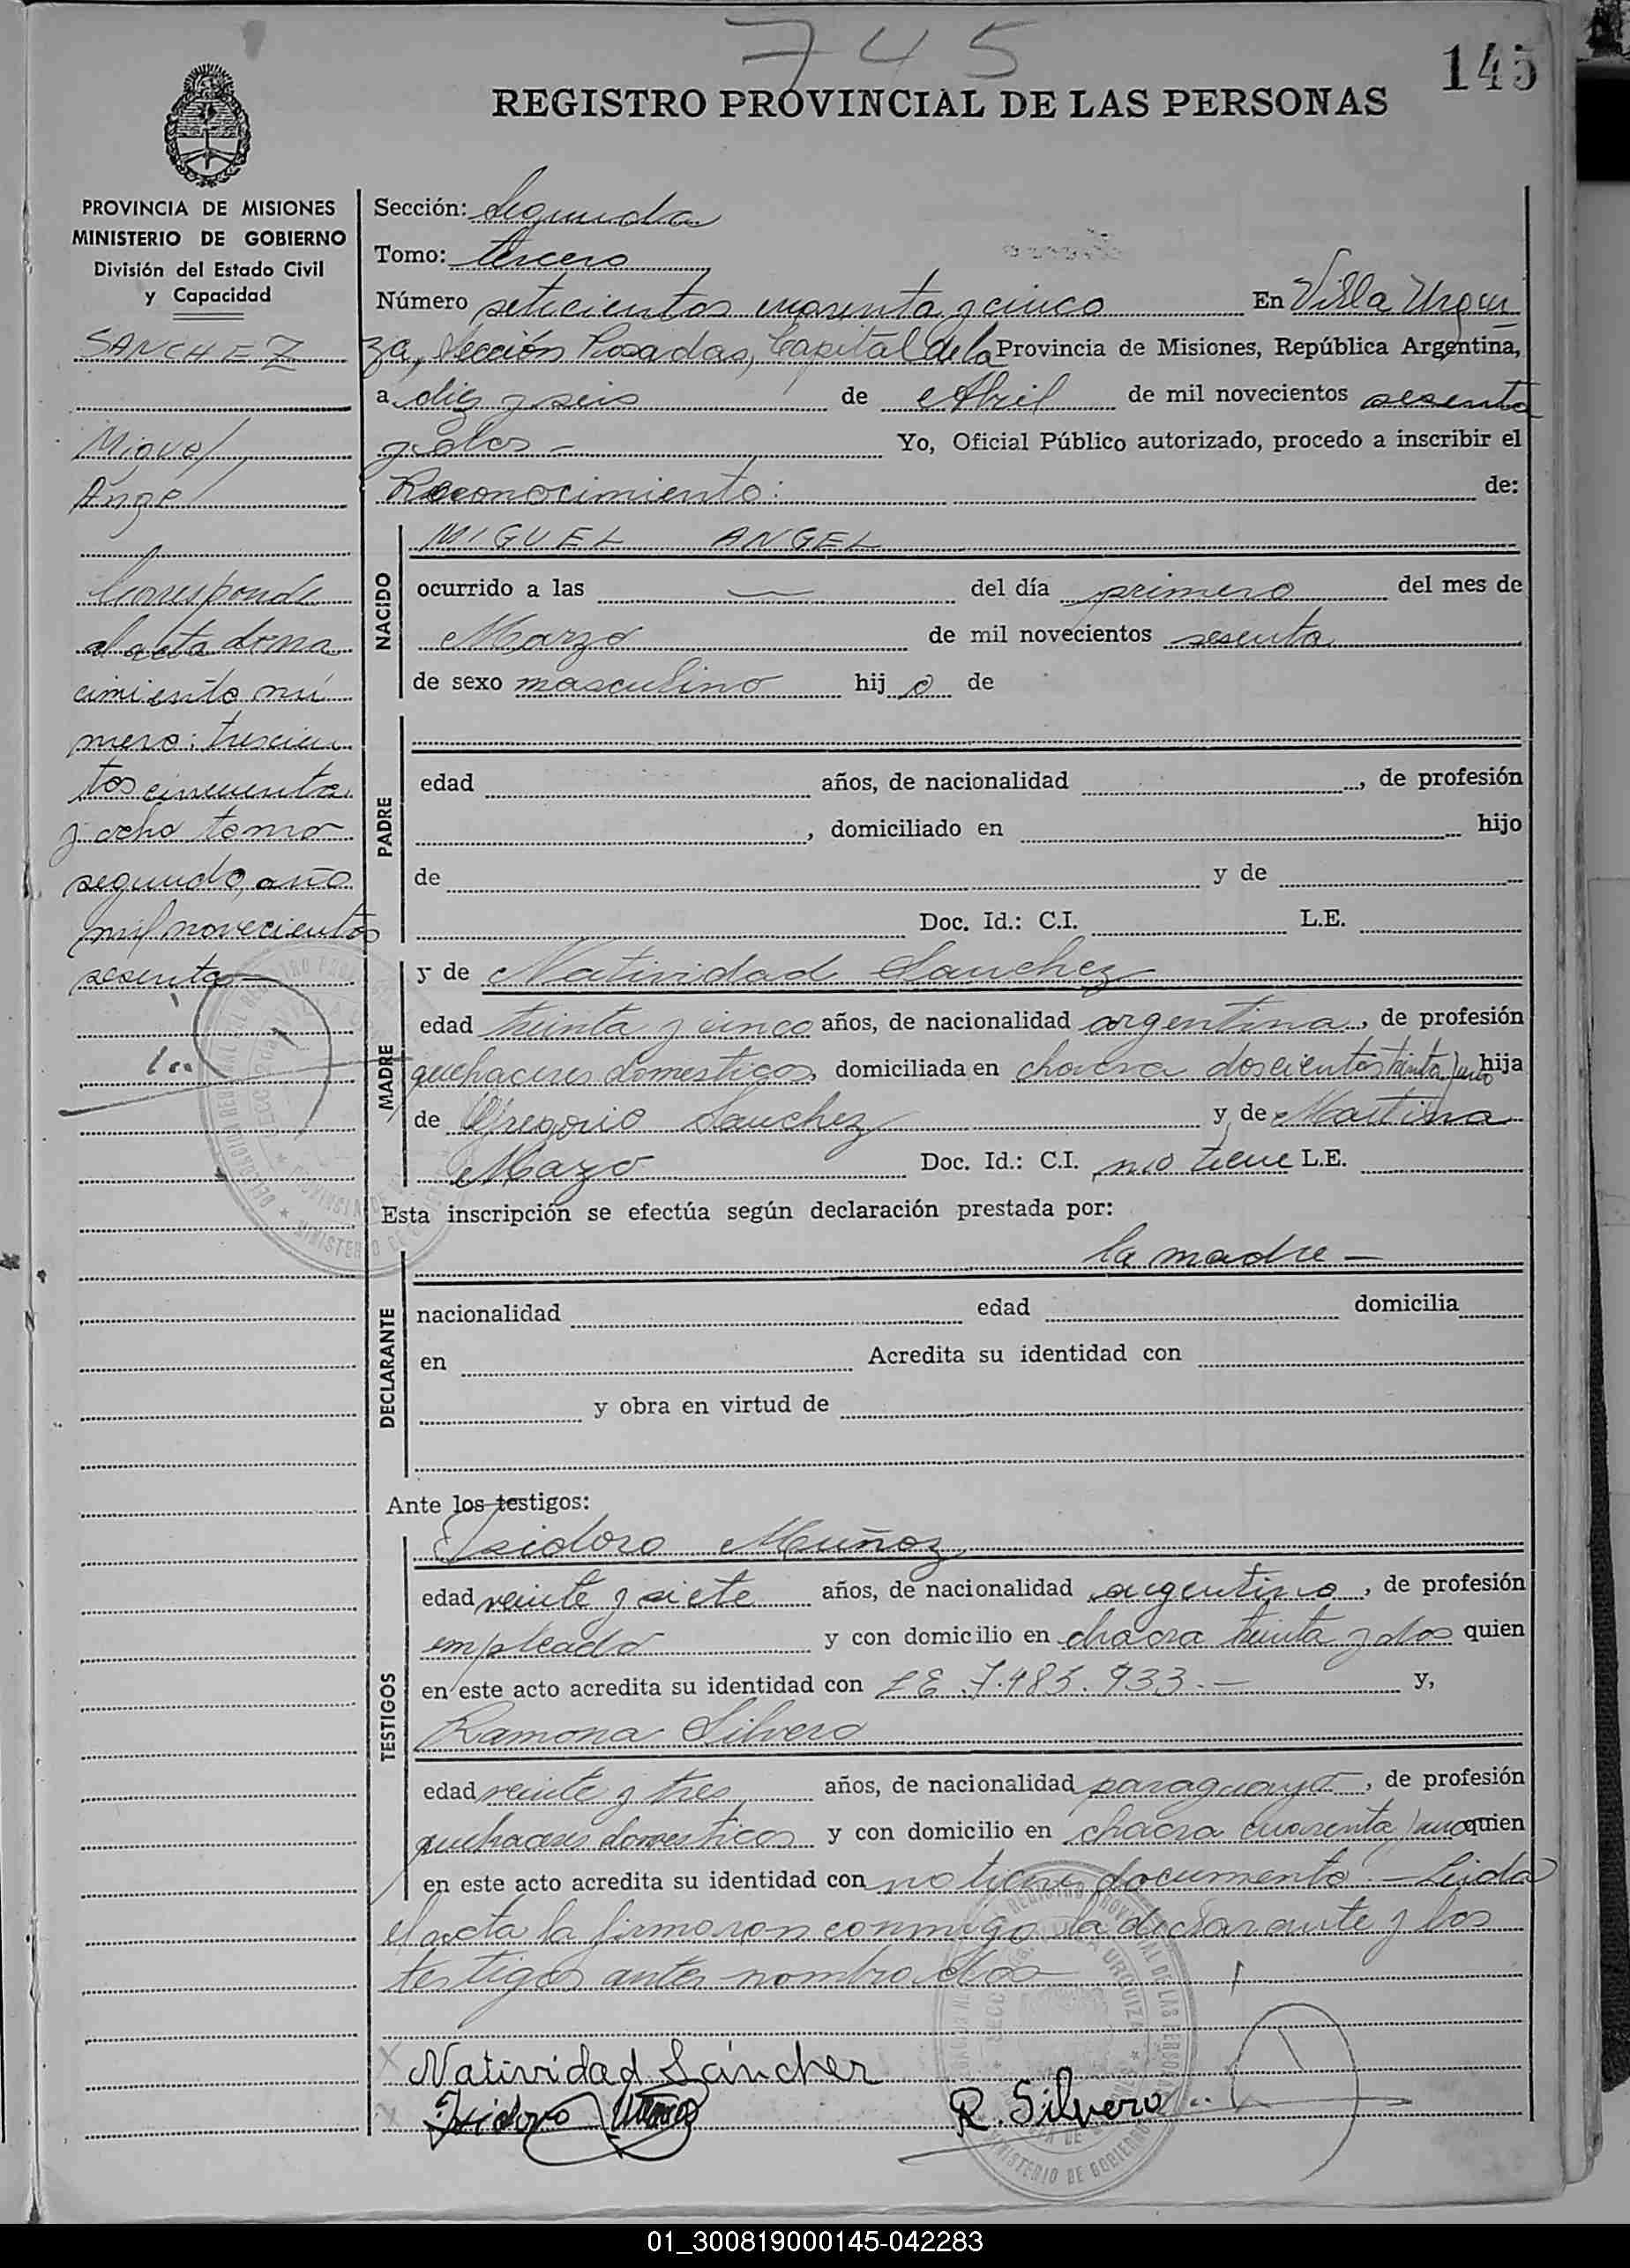 745
145
REGISTRO PROVINCIAL DE LAS PERSONAS
PROVINCIA DE MISIONES
MINISTERIO DE GOBIERNO
División del Estado Civil
y Capacidad
SANCHEZ
Miguel
Angel
Corresponde
al acta de na
cimiento nú
mero: trescien
tos cincuenta
y ocho tomo
segundo, año
mil novecientos
sesenta
Sección: Segunda
Tomo: tercero
Número setecientos cuarenta y cinco En Villa Urqui
za, Sección Posadas, Capital de la Provincia de Misiones, República Argentina,
a diez y seis de Abril de mil novecientos sesenta
y dos - Yo, Oficial Público autorizado, procedo a inscribir el
Reconocimiento: de:
NACIDO
MIGUEL ANGEL
ocurrido a las — del día primero del mes de
Marzo de mil novecientos sesenta
de sexo masculino hijo de
PADRE
edad años, de nacionalidad , de profesión
, domiciliado en hijo
de y de
Doc. Id.: C.I. L.E.
MADRE
y de Natividad Sanchez
edad treinta y cinco años, de nacionalidad argentina, de profesión
quehaceres domesticos, domiciliada en chacra doscientos treinta y uno hija
de Gregorio Sanchez y de Martina
Mazo Doc. Id.: C.I. no tiene L.E.
Esta inscripción se efectúa según declaración prestada por:
la madre -
DECLARANTE
nacionalidad edad domicilia
en Acredita su identidad con
y obra en virtud de
Ante los testigos:
TESTIGOS
Isidoro Muñoz
edad veinte y siete años, de nacionalidad argentino, de profesión
empleado y con domicilio en chacra treinta y dos quien
en este acto acredita su identidad con LE 7.485.933.- y,
Ramona Silvero
edad veinte y tres años, de nacionalidad paraguaya, de profesión
quehaceres domesticos y con domicilio en chacra cuarenta y uno quien
en este acto acredita su identidad con no tiene documento.- Leida
el acta la firmaron conmigo la declarante y los
testigos antes nombrados
Natividad Sánchez
Isidoro Muñoz
R. Silvero
01_300819000145-042283